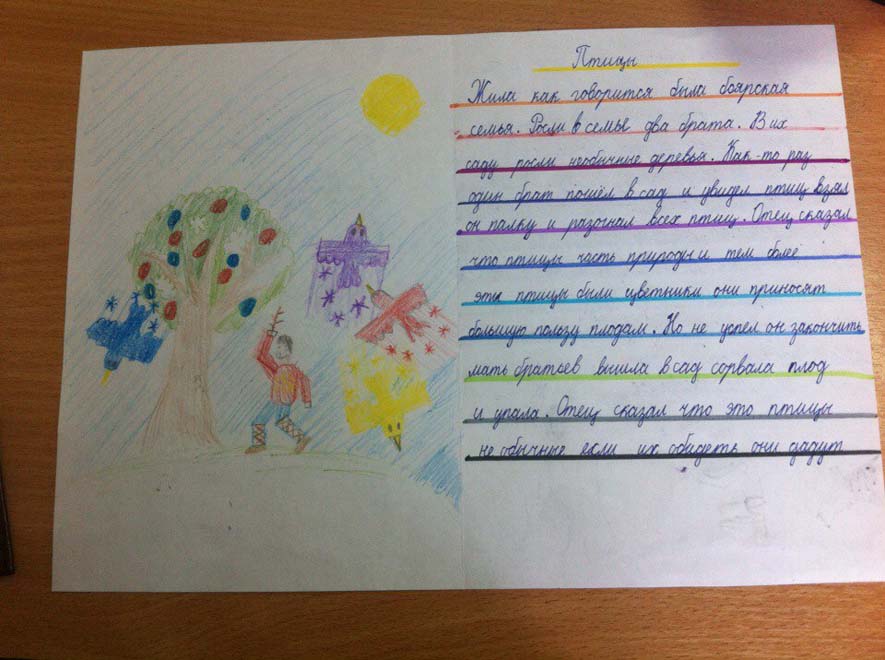 Птицы
Жила как говорится была боярская
семья. Росли в семье два брата. В их
саду росли необычные деревья. Как-то раз
один брат пошёл в сад и увидел птиц взял
он палку и разогнал всех птиц. Отец сказал
что птицы часть природы и тем более
эти птицы были цветники они приносят
большую пользу плодам. Но не успел он закончить
мать братьев вышла в сад сорвала плод
и упала. Отец сказал что это птицы
не обычные если их обидеть они дадут